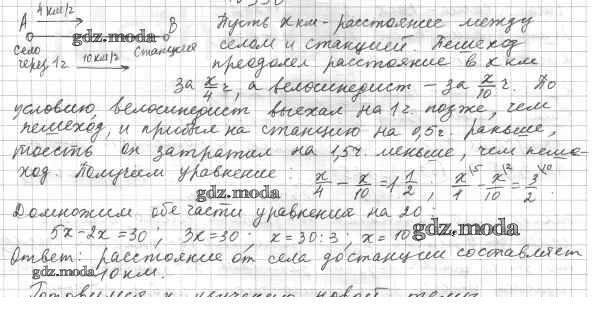 4 км/г
A B Пусть x км - расстояние между
село станция селом и станцией. Пешеход
через 1г 10 км/г преодолел расстояние в x км
за x/4 г, а велосипедист - за x/10 г. По
условию, велосипедист выехал на 1 г. позже, чем
пешеход, и прибыл на станцию на 0,5 г. раньше,
тоесть он затратил на 1,5 г. меньше, чем пеше-
ход. Получаем уравнение: x/4 - x/10 = 1 1/2; x/4 - x/10 = 3/2
Домножим обе части уравнения на 20:
5x - 2x = 30; 3x = 30; x = 30:3; x = 10
Ответ: расстояние от села до станции составляет
10 км.
Готовимся к изучению новой темы
gdz.moda
gdz.moda
gdz.moda
gdz.moda